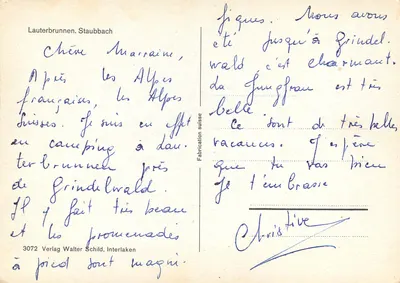 Lauterbrunnen. Staubbach
Chère Marraine,
Après les Alpes
françaises, les Alpes
Suisses. Je suis en effet
en camping à Lau-
terbrunnen près
de Grindelwald.
Il y fait très beau
et les promenades
3072 Verlag Walter Schild, Interlaken
à pied sont magni-
Fabrication suisse
fiques. Nous avons
été jusqu'à Grindel-
wald c'est charmant.
La Jungfrau est très
belle
Ce sont de très belles
vacances. J'espère
que tu vas bien
Je t'embrasse
Christine